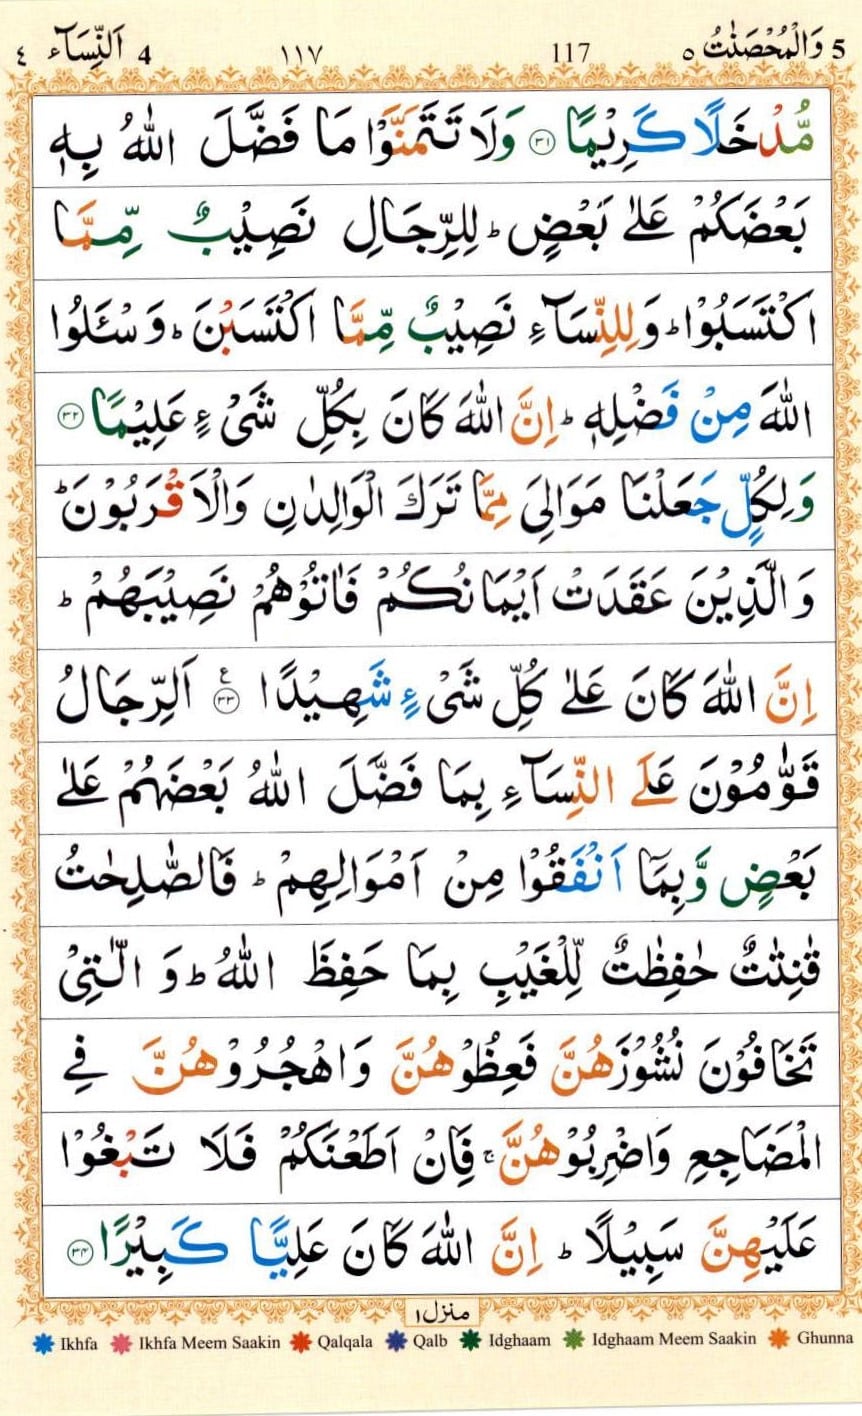 5 وَالْمُحْصَنٰتُ ٥ 117 ١١٧ 4 اَلنِّسَآء ٤
مُّدْخَلًا كَرِيْمًا ﴿٣١﴾ وَلَا تَتَمَنَّوْا مَا فَضَّلَ اللّٰهُ بِهٖ
بَعْضَكُمْ عَلٰى بَعْضٍ ؕ لِلرِّجَالِ نَصِيْبٌ مِّمَّا
اكْتَسَبُوْا ؕ وَلِلنِّسَآءِ نَصِيْبٌ مِّمَّا اكْتَسَبْنَ ؕ وَسْـَٔلُوا
اللّٰهَ مِنْ فَضْلِهٖ ؕ اِنَّ اللّٰهَ كَانَ بِكُلِّ شَىْءٍ عَلِيْمًا ﴿٣٢﴾
وَلِكُلٍّ جَعَلْنَا مَوَالِىَ مِمَّا تَرَكَ الْوَالِدٰنِ وَالْاَقْرَبُوْنَ ؕ
وَالَّذِيْنَ عَقَدَتْ اَيْمَانُكُمْ فَاٰتُوْهُمْ نَصِيْبَهُمْ ؕ
اِنَّ اللّٰهَ كَانَ عَلٰى كُلِّ شَىْءٍ شَهِيْدًا ﴿٣٣﴾ ع اَلرِّجَالُ
قَوّٰمُوْنَ عَلَى النِّسَآءِ بِمَا فَضَّلَ اللّٰهُ بَعْضَهُمْ عَلٰى
بَعْضٍ وَّبِمَاۤ اَنْفَقُوْا مِنْ اَمْوَالِهِمْ ؕ فَالصّٰلِحٰتُ
قٰنِتٰتٌ حٰفِظٰتٌ لِّلْغَيْبِ بِمَا حَفِظَ اللّٰهُ ؕ وَالّٰتِىْ
تَخَافُوْنَ نُشُوْزَهُنَّ فَعِظُوْهُنَّ وَاهْجُرُوْهُنَّ فِى
الْمَضَاجِعِ وَاضْرِبُوْهُنَّ ۚ فَاِنْ اَطَعْنَكُمْ فَلَا تَبْغُوْا
عَلَيْهِنَّ سَبِيْلًا ؕ اِنَّ اللّٰهَ كَانَ عَلِيًّا كَبِيْرًا ﴿٣٤﴾
منزل ١
Ikhfa Ikhfa Meem Saakin Qalqala Qalb Idghaam Idghaam Meem Saakin Ghunna